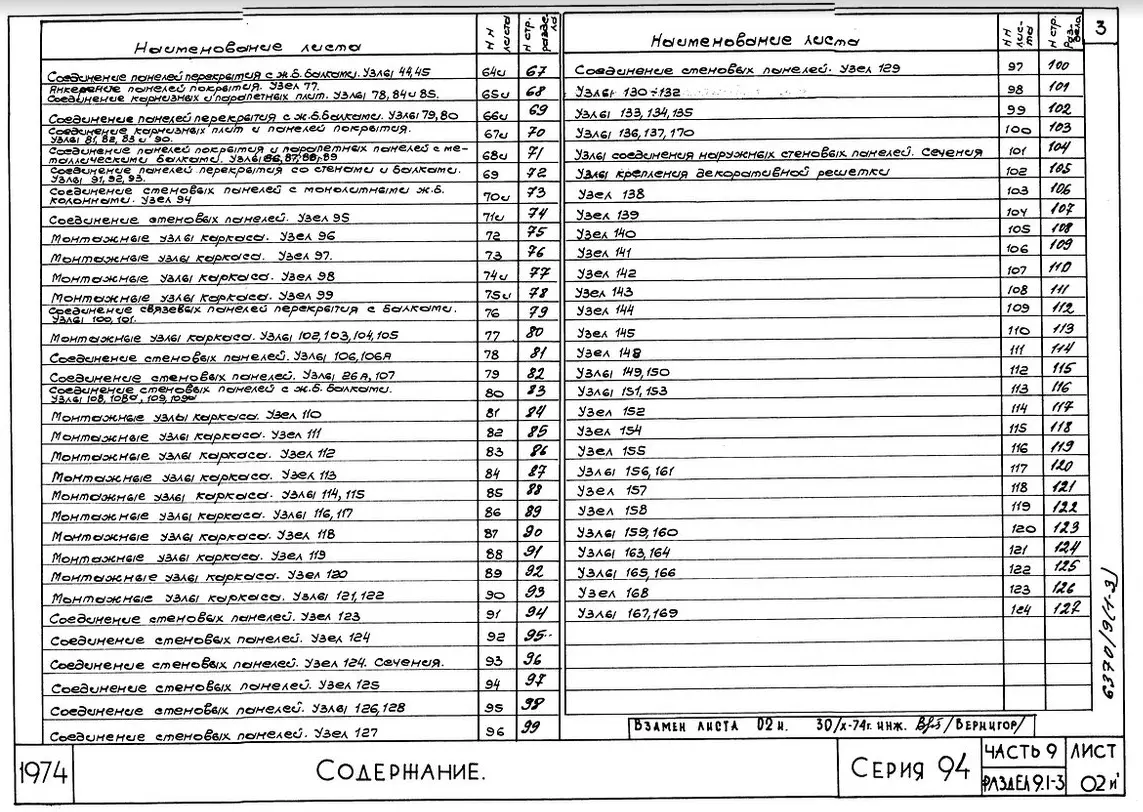 3
Наименование листа | NN листа | N стр. раздела
Соединение панелей перекрытия с ж.б. балками. Узлы 44,45 | 64и | 67
Анкерение панелей покрытия. Узел 77.
Соединение карнизных и парапетных плит. Узлы 78, 84 и 85. | 65и | 68
Соединение панелей перекрытия с ж.б. балками. Узлы 79, 80 | 66и | 69
Соединение карнизных плит и панелей покрытия.
Узлы 81, 82, 83 и 90. | 67и | 70
Соединение панелей покрытия и парапетных панелей с ме-
таллическими балками. Узлы 86, 87, 88, 89 | 68и | 71
Соединение панелей перекрытия со стенами и балками.
Узлы 91, 92, 93. | 69 | 72
Соединение стеновых панелей с монолитными ж.б.
колоннами. Узел 94 | 70и | 73
Соединение стеновых панелей. Узел 95 | 71и | 74
Монтажные узлы каркаса. Узел 96 | 72 | 75
Монтажные узлы каркаса. Узел 97. | 73 | 76
Монтажные узлы каркаса. Узел 98 | 74и | 77
Монтажные узлы каркаса. Узел 99 | 75и | 78
Соединение связевых панелей перекрытия с балками.
Узлы 100, 101. | 76 | 79
Монтажные узлы каркаса. Узлы 102, 103, 104, 105 | 77 | 80
Соединение стеновых панелей. Узлы 106, 106А | 78 | 81
Соединение стеновых панелей. Узлы 26А, 107 | 79 | 82
Соединение стеновых панелей с ж.б. балками.
Узлы 108, 108а, 109, 109а | 80 | 83
Монтажные узлы каркаса. Узел 110 | 81 | 84
Монтажные узлы каркаса. Узел 111 | 82 | 85
Монтажные узлы каркаса. Узел 112 | 83 | 86
Монтажные узлы каркаса. Узел 113 | 84 | 87
Монтажные узлы каркаса. Узлы 114, 115 | 85 | 88
Монтажные узлы каркаса. Узлы 116, 117 | 86 | 89
Монтажные узлы каркаса. Узел 118 | 87 | 90
Монтажные узлы каркаса. Узел 119 | 88 | 91
Монтажные узлы каркаса. Узел 120 | 89 | 92
Монтажные узлы каркаса. Узлы 121, 122 | 90 | 93
Соединение стеновых панелей. Узел 123 | 91 | 94
Соединение стеновых панелей. Узел 124 | 92 | 95
Соединение стеновых панелей. Узел 124. Сечения. | 93 | 96
Соединение стеновых панелей. Узел 125 | 94 | 97
Соединение стеновых панелей. Узлы 126, 128 | 95 | 98
Соединение стеновых панелей. Узел 127 | 96 | 99
Наименование листа | NN листа | N стр. раздела
Соединение стеновых панелей. Узел 129 | 97 | 100
Узлы 130÷132 | 98 | 101
Узлы 133, 134, 135 | 99 | 102
Узлы 136, 137, 170 | 100 | 103
Узлы соединения наружных стеновых панелей. Сечения | 101 | 104
Узлы крепления декоративной решетки | 102 | 105
Узел 138 | 103 | 106
Узел 139 | 104 | 107
Узел 140 | 105 | 108
Узел 141 | 106 | 109
Узел 142 | 107 | 110
Узел 143 | 108 | 111
Узел 144 | 109 | 112
Узел 145 | 110 | 113
Узел 148 | 111 | 114
Узлы 149, 150 | 112 | 115
Узлы 151, 153 | 113 | 116
Узел 152 | 114 | 117
Узел 154 | 115 | 118
Узел 155 | 116 | 119
Узлы 156, 161 | 117 | 120
Узел 157 | 118 | 121
Узел 158 | 119 | 122
Узлы 159, 160 | 120 | 123
Узлы 163, 164 | 121 | 124
Узлы 165, 166 | 122 | 125
Узел 168 | 123 | 126
Узлы 167, 169 | 124 | 127
6370/9(1-3)
Взамен листа 02и. 30/X-74г. инж. /Вернигор/
1974
Содержание.
Серия 94
Часть 9
Раздел 9.1-3
Лист
02и'